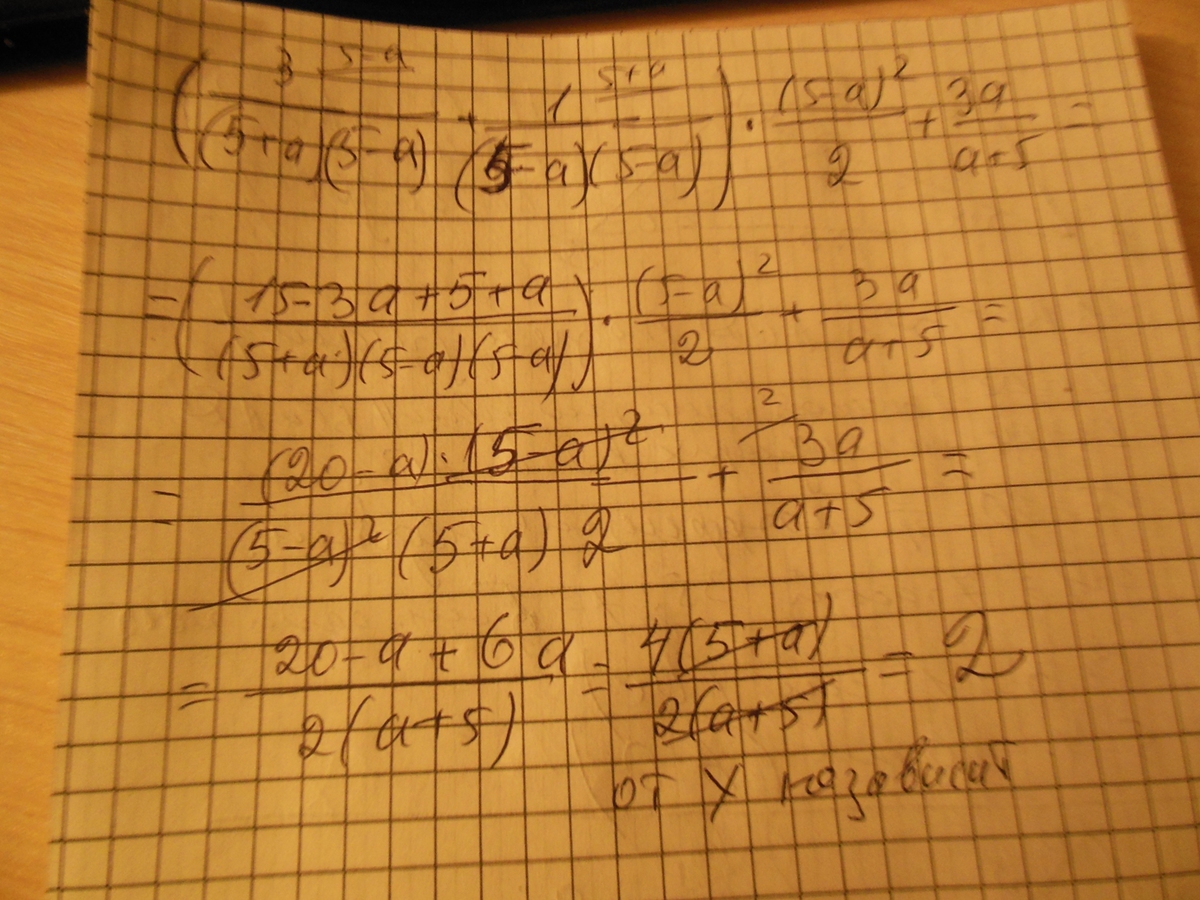 (3 (5-a / (5+a)(5-a) + 1 (5+a / (5-a)(5-a)) · (5-a)² / 2 + 3a / a+5 =
= (15-3a+5+a / (5+a)(5-a)(5-a)) · (5-a)² / 2 + 3a / a+5 =
= (20-a)·(5-a)² / (5-a)² (5+a) 2 + 2/ 3a / a+5 =
= 20-a+6a / 2(a+5) = 4(5+a) / 2(a+5) = 2
от у независит